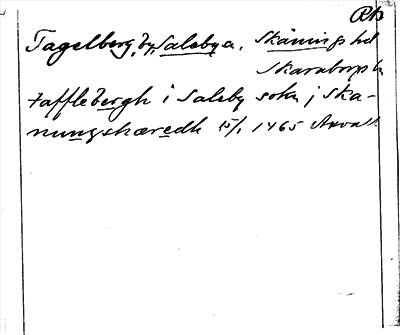 Rk
Tagelberg, by, Saleby s. Skånings hd
Skaraborgs l.
tafflebergh i Saleby sokn j ska-
nungshæredh 15/1 1465 Axvall